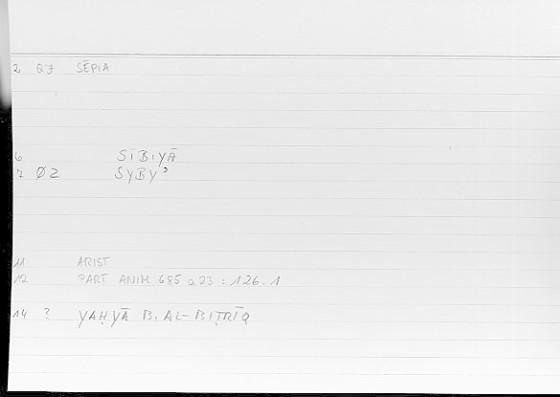 2 07 SĒPIA
6 SĪBIYĀ
7 Ø2 SYBY'
11 ARIST
12 PART ANIM 685 a 23 : 126.1
14 ? YAḤYĀ B. AL-BIṬRĪQ